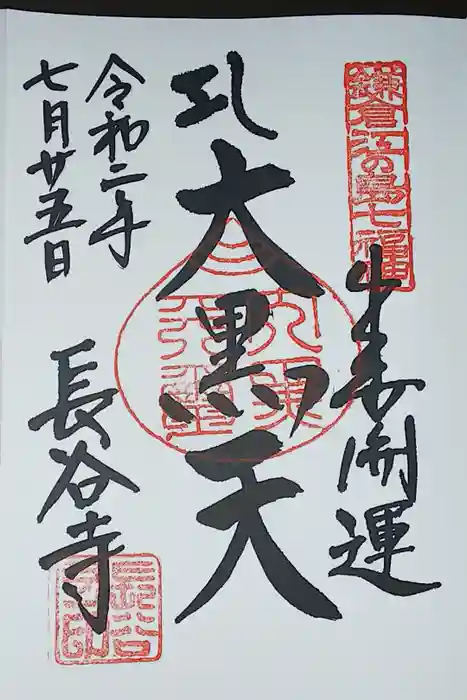 鎌倉江の島七福神
出世開運
大黒天
令和二年
七月廿五日
長谷寺
長谷
寺印